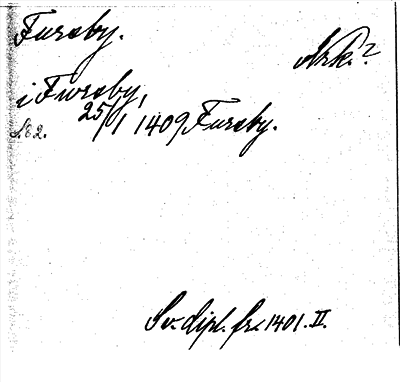 Fursby.
Nrk.?
i Fursby,
S. 82. 25/1 1409 Fursby.
Sv. dipl. fr. 1401. II.